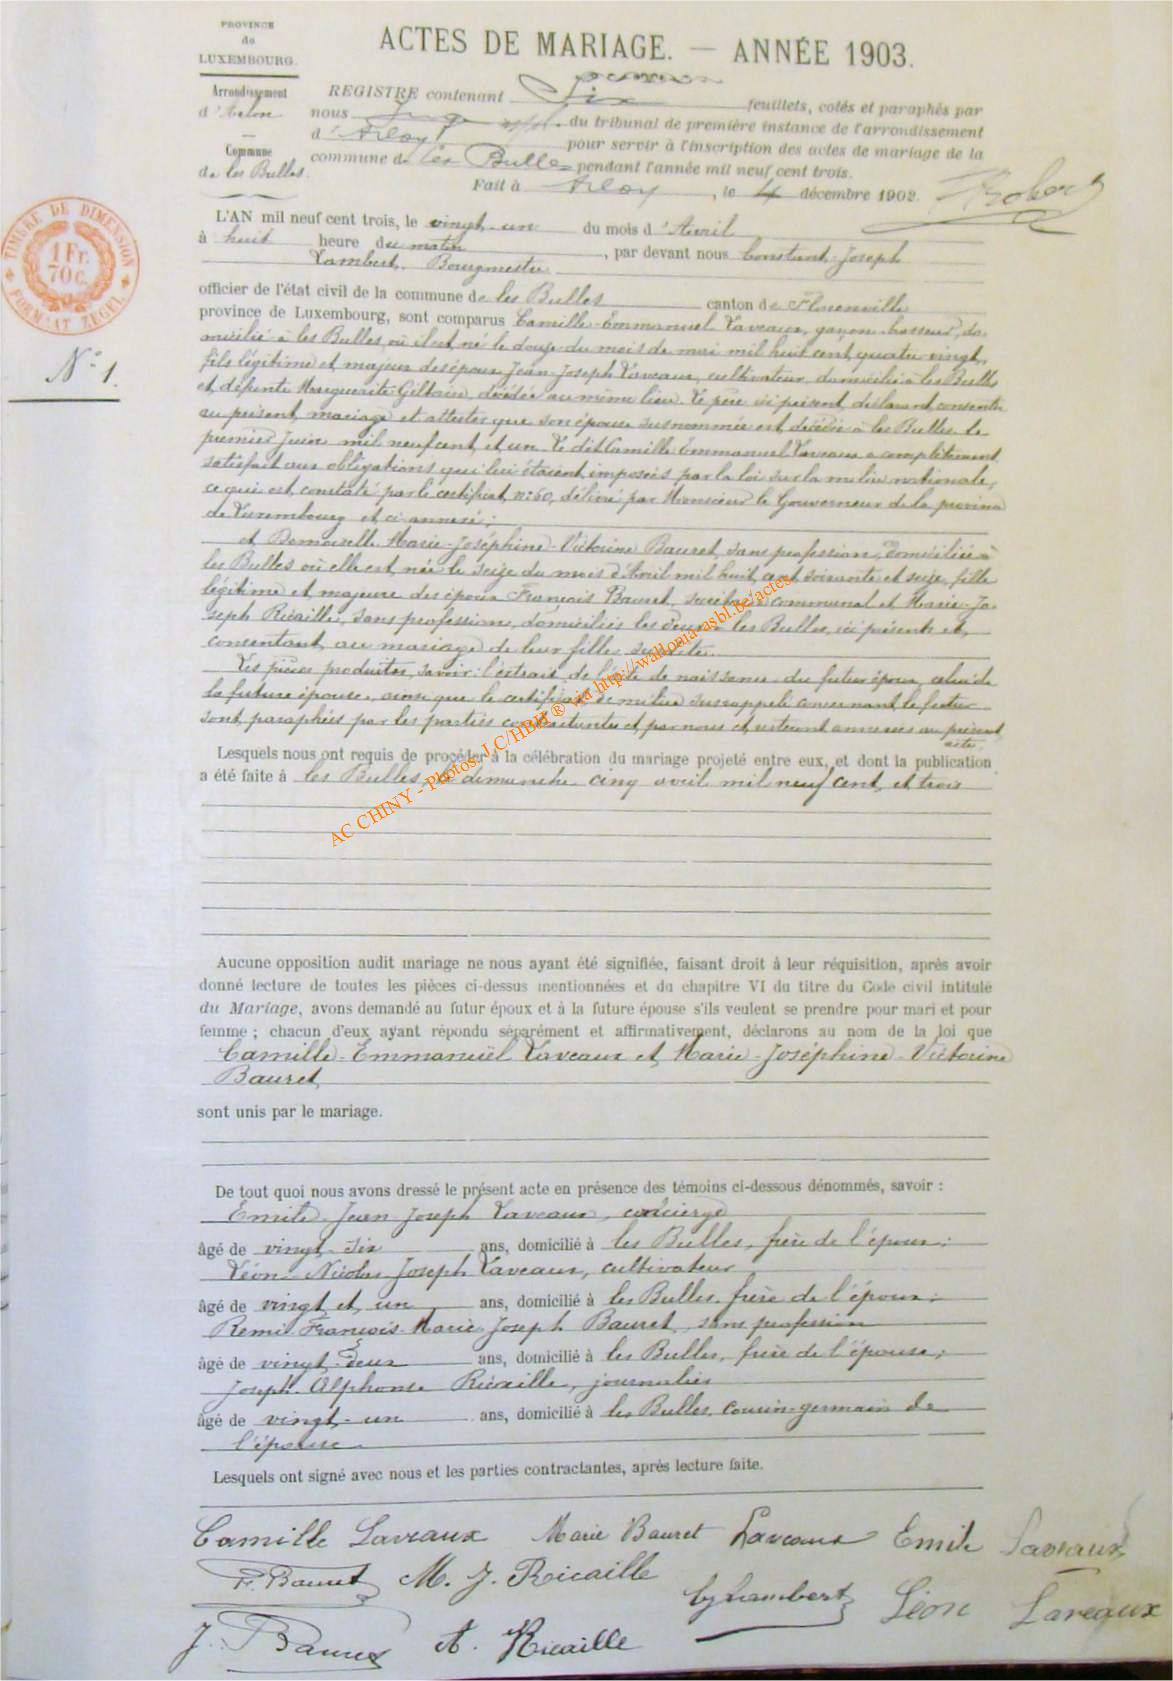 PROVINCE
de
LUXEMBOURG.
Arrondissement
d'Arlon
Commune
de les Bulles.
ACTES DE MARIAGE. — ANNÉE 1903.
REGISTRE contenant Six feuillets, cotés et paraphés par
nous Juge du tribunal de première instance de l'arrondissement
d'Arlon pour servir à l'inscription des actes de mariage de la
commune de les Bulles pendant l'année mil neuf cent trois.
Fait à Arlon, le 4 décembre 1902.
TIMBRE DE DIMENSION
1 Fr.
70 c.
FORMAAT ZEGEL
N° 1.
L'AN mil neuf cent trois, le vingt-un du mois d'Avril
à huit heure du matin, par devant nous Constant-Joseph
Lambert, Bourgmestre
officier de l'état civil de la commune de les Bulles canton de Florenville
province de Luxembourg, sont comparus Camille-Emmanuel Laveaux, garçon-brasseur, do-
micilié à les Bulles, où il est né le douze du mois de mai mil huit cent quatre vingt,
fils légitime et majeur des époux Jean-Joseph Laveaux, cultivateur, domicilié à les Bulles
et défunte Marguerite Gillain, décédée au même lieu. Le père ici présent, déclarant consentir
au présent mariage et attester que son épouse susnommée est décédée à les Bulles le
premier Juin mil neuf cent et un. Le dit Camille Emmanuel Laveaux a complètement
satisfait aux obligations qui lui étaient imposées par la loi sur la milice nationale,
ce qui est constaté par le certificat n° 60, délivré par Monsieur le Gouverneur de la province
de Luxembourg et ci-annexé;
et Demoiselle Marie-Joséphine-Victorine Bauret, sans profession, domiciliée à
les Bulles où elle est née le seize du mois d'Avril mil huit cent soixante et seize, fille
légitime et majeure des époux François Bauret, secrétaire communal et Marie-Jo-
seph Ricaille, sans profession, domiciliés les deux à les Bulles, ici présents et
consentant au mariage de leur fille
Les pièces produites, savoir: l'extrait de l'acte de naissance du futur époux, celui de
la future épouse, ainsi que le certificat de milice susrappelé concernant le futur
sont paraphées par les parties contractantes et par nous et resteront annexées au présent
acte.
Lesquels nous ont requis de procéder à la célébration du mariage projeté entre eux, et dont la publication
a été faite à les Bulles, le dimanche cinq avril mil neuf cent et trois
AC CHINY - Photos J.C/HBH ® via http://wallonia-asbl.be/actes
Aucune opposition audit mariage ne nous ayant été signifiée, faisant droit à leur réquisition, après avoir
donné lecture de toutes les pièces ci-dessus mentionnées et du chapitre VI du titre du Code civil intitulé
du Mariage, avons demandé au futur époux et à la future épouse s'ils veulent se prendre pour mari et pour
femme ; chacun d'eux ayant répondu séparément et affirmativement, déclarons au nom de la loi que
Camille-Emmanuel Laveaux et Marie-Joséphine-Victorine
Bauret
sont unis par le mariage.
De tout quoi nous avons dressé le présent acte en présence des témoins ci-dessous dénommés, savoir :
Emile Jean Joseph Laveaux, concierge
âgé de vingt-six ans, domicilié à les Bulles, frère de l'époux;
Léon Nicolas Joseph Laveaux, cultivateur
âgé de vingt et un ans, domicilié à les Bulles, frère de l'époux;
Remi François Marie Joseph Bauret, sans profession
âgé de vingt-deux ans, domicilié à les Bulles, frère de l'épouse;
Joseph-Alphonse Ricaille, journalier
âgé de vingt-un ans, domicilié à les Bulles, cousin-germain de
l'épouse.
Lesquels ont signé avec nous et les parties contractantes, après lecture faite.
Camille Laveaux Marie Bauret Laveaux Emile Laveaux
F. Bauret M. J. Ricaille CJ Lambert Léon Laveaux
J. Bauret A. Ricaille